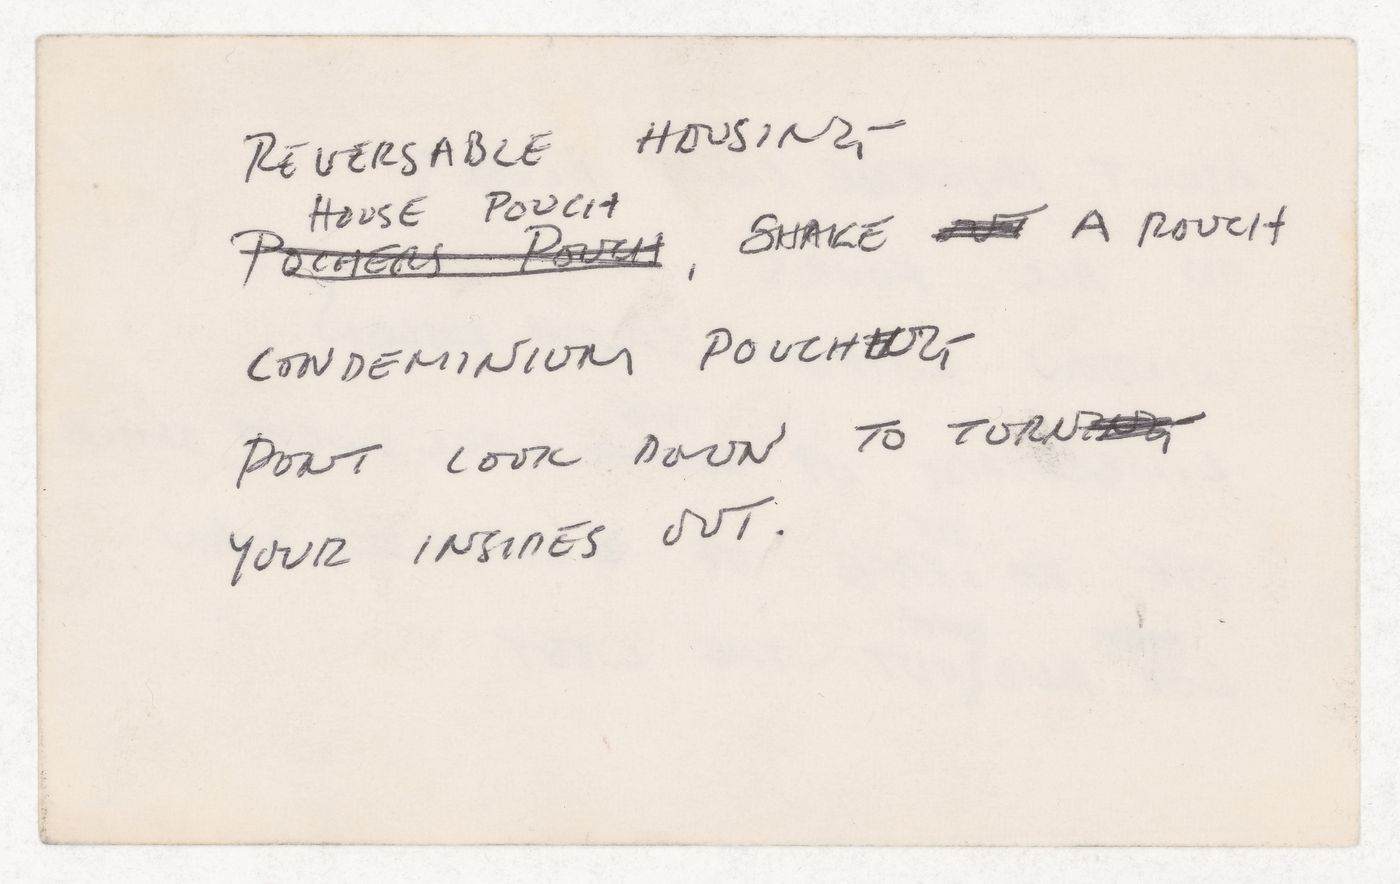 REVERSABLE HOUSING
HOUSE POUCH
POCHERS POUCH, SHAKE OUT A POUCH
CONDEMINIUM POUCHING
DONT LOOK DOWN TO TURNING
YOUR INSIDES OUT.